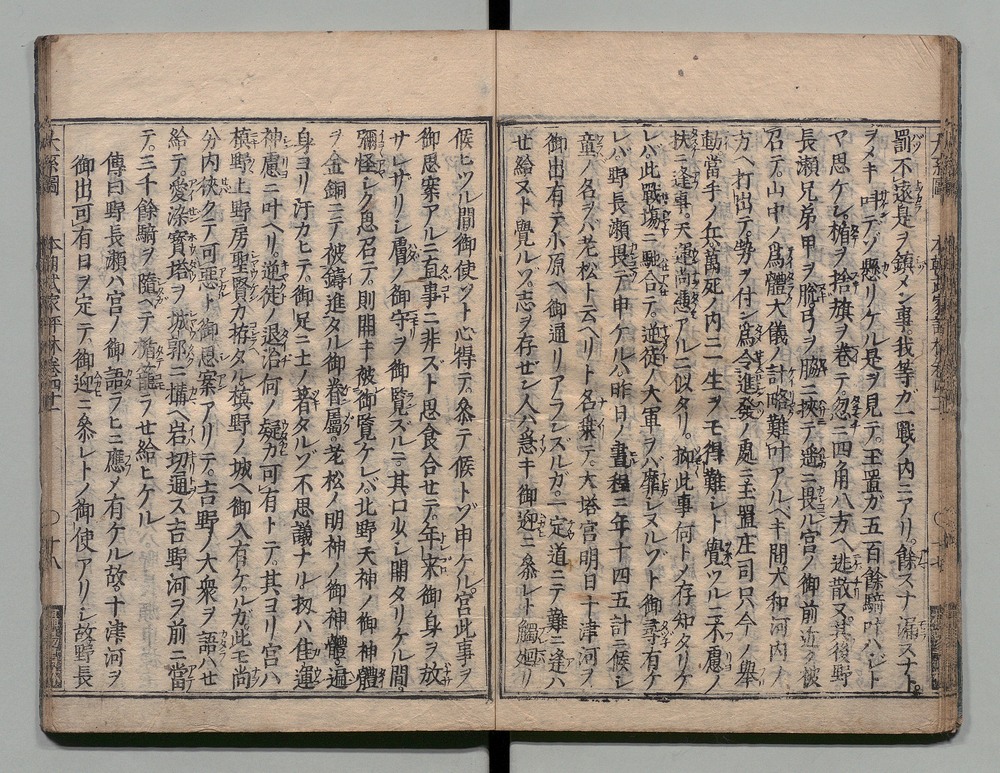 罰不遠是ヲ鎮メン事我等ガ一戰ノ内ニアリ。餘スナ漏スナト。
ヲメキ叫テゾ懸リケル是ヲ見テ。玉置ガ五百餘騎叶ハジト
ヤ思ケン。楯ヲ捨旗ヲ卷テ忽ニ四角八方ヘ逃散ヌ。其後野
長瀬兄弟甲ヲ脱弓ヲ脇ニ挾テ遥ニ畏ル宮ノ御前近ク被
召テ。山中ノ爲體大儀ノ計略難叶アルベキ間。大和河内ノ
方ヘ打出テ。勢ヲ付ン爲令進發ノ處ニ玉置庄司只今ノ擧
動當手ノ兵萬死ノ内ニ一生ヲモ得難シト覺ツルニ不慮ノ
扶ニ逢事。天運尚憑アルニ似タリ。抑此事何トメ存知タリケ
レバ。此戰場ニ馳合テ。逆徒ノ大軍ヲバ靡シヌルゾト御尋有ケ
レバ。野長瀬畏テ申ケルハ。昨日ノ晝程ニ年十四五計ニ候シ
童ノ名ヲバ老松ト云ヘリト名乗テ。大塔宮明日十津河ヲ
御出有テ小原ヘ御通リアランズルガ。一定道ニテ難ニ逢ハ
世給ヌト覺ルゾ。志ヲ存ゼン人ハ急キ御迎ニ參レト觸廻リ
候ヒツル間御使ゾト心得テ。參テ候トゾ申ケル。宮此事ヲ
御思案アルニ直事ニ非ズト思食合セテ。年來御身ヲ放
サレザリシ膚ノ御守ヲ御覧ズルニ。其口少シ開タリケル間。
彌怪シク思召テ。則開キ被御覧ケレバ。北野天神ノ御神體
ヲ金銅ニテ被鑄進タル御眷屬。老松ノ明神ノ御神體。遍
身ヨリ汗カヒテ。御足ニ土ノ著タルゾ不思議ナル扨ハ佳運
神慮ニ叶ヘリ。逆徒ノ退治何ノ疑カ可有トテ。其ヨリ宮ハ
槙野上野房聖賢カ拵タル。槙野ノ城ヘ御入有ケルガ。此モ尚
分内狹クテ可惡ト御思案アリテ。吉野ノ大衆ヲ語ハせ
給テ。愛染寶塔ヲ城郭ニ構ヘ岩切通ス吉野河ヲ前ニ當
テ。三千餘騎ヲ隨ヘテ楯籠ラせ給ヒケル
傳曰野長瀬ハ宮ノ御語ラヒニ應メ有ケル故。十津河ヲ
御出可有日ヲ定テ。御迎ニ參レトノ御使アリシ故野長